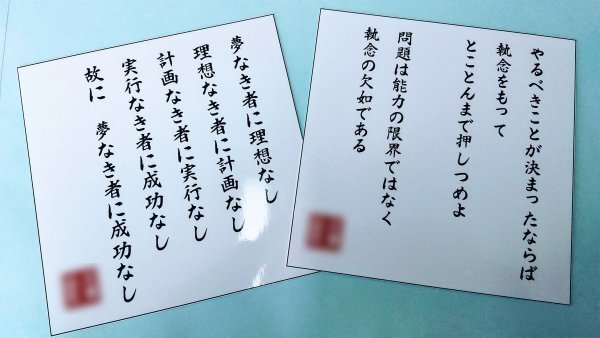 やるべきことが決まったならば
執念をもって
とことんまで押しつめよ
問題は能力の限界ではなく
執念の欠如である
夢なき者に理想なし
理想なき者に計画なし
計画なき者に実行なし
実行なき者に成功なし
故に　夢なき者に成功なし